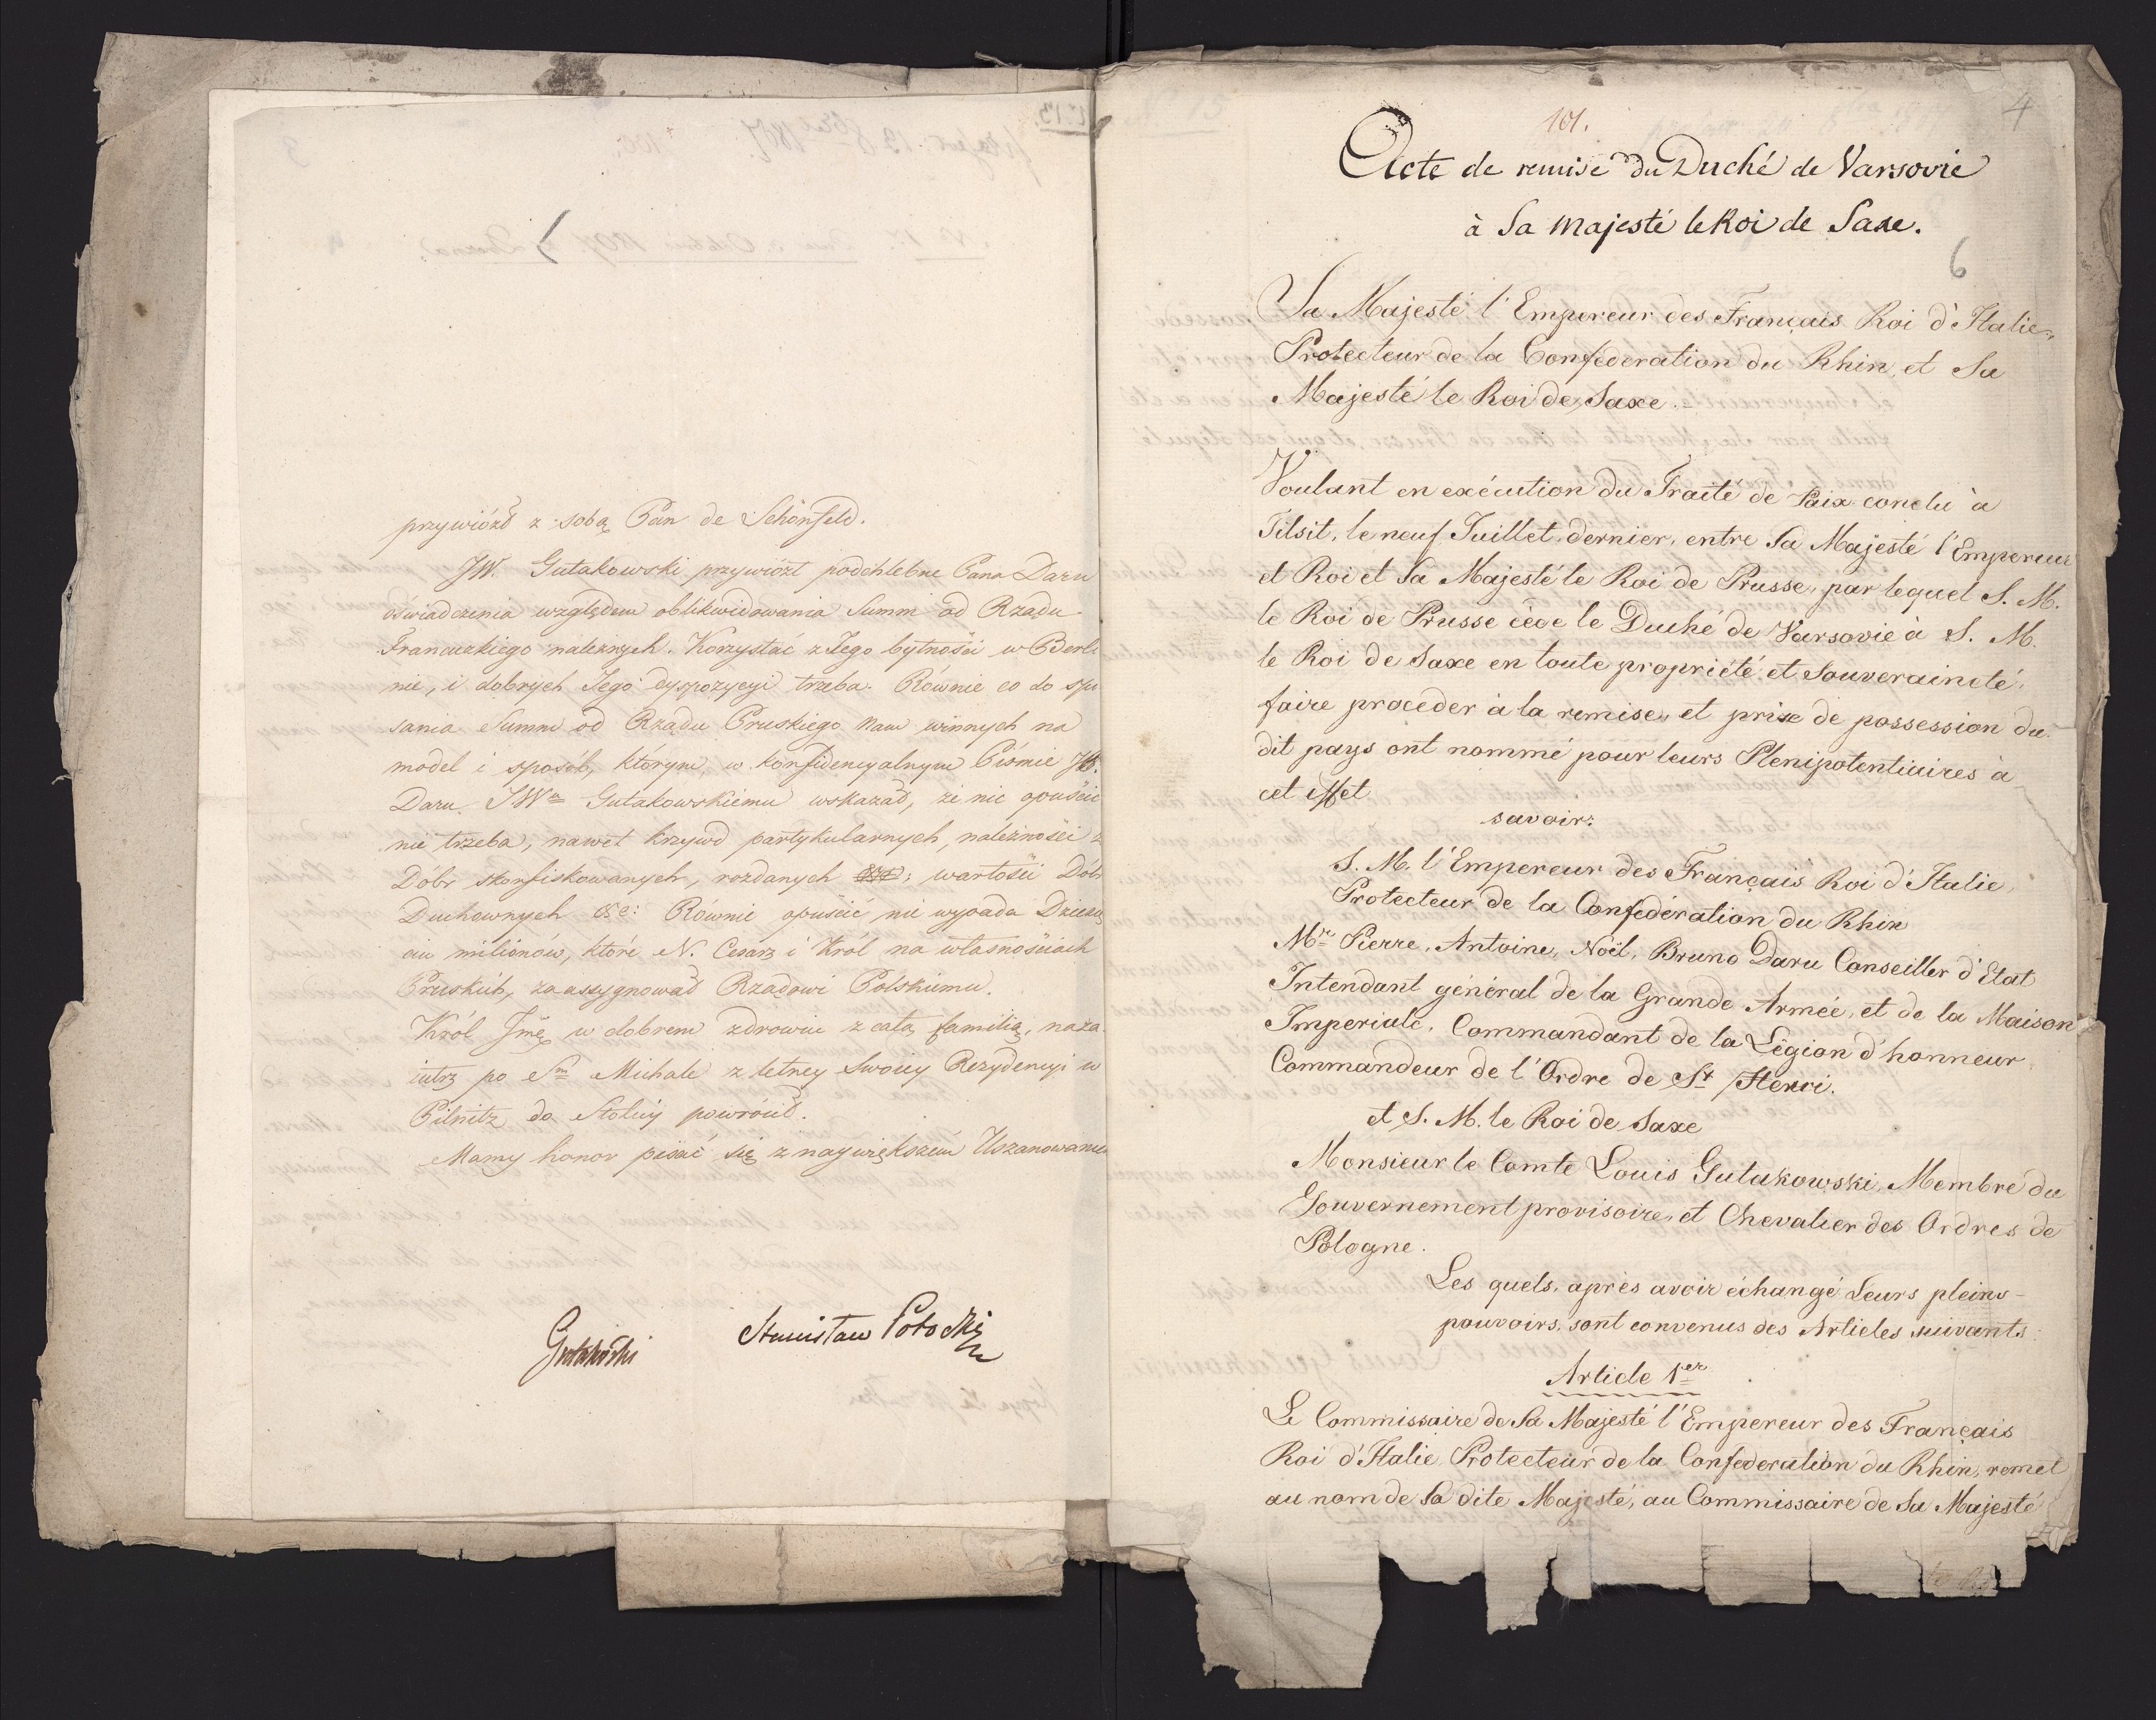 przywiózł z sobą Pan de Schönfeld.
JW. Gutakowski przywiózł podchlebne Pana Daru
oświadczenia względem oblikwidowania Summ od Rządu
Francuzkiego należnych. Korzystać z Jego bytności w Berli
nie, i dobrych Jego dyspozycyi trzeba. Równie co do spi
sania Summ od Rządu Pruskiego Nam winnych na
model i sposób, którym w konfidencyalnym Piśmie JW.
Daru JWu Gutakowskiemu wskazał, że nic opuścić
nie trzeba, nawet krzywd partykularnych, należności z
Dóbr skonfiskowanych, rozdanych ; wartości Dóbr
Duchownych &c: Równie opuścić nie wypada Dziesię
ciu milionów, które N. Cesarz i Król na własnościach
Pruskich, zaassygnował Rządowi Polskiemu.
Król Jmć w dobrem zdrowiu z całą familią, naza
iutrz po Sm Michale z letney Swoiey Rezydencyi w
Pilnitz do Stolicy powrócił.
Mamy honor pisać się z naywiększem Uszanowaniem
Gutakoski
Stanisław Potocki
4
101.
Acte de remise du Duché de Varsovie
à Sa Majesté le Roi de Saxe.
6
Sa Majesté l'Empereur des Français Roi d'Italie,
Protecteur de la Confédération du Rhin, et Sa
Majesté le Roi de Saxe.
Voulant en exécution du Traité de Paix conclu à
Tilsit, le neuf Juillet dernier, entre Sa Majesté l'Empereur
et Roi et Sa Majesté le Roi de Prusse, par lequel S. M.
le Roi de Prusse cède le Duché de Varsovie à S. M.
le Roi de Saxe en toute propriété et Souveraineté,
faire procéder à la remise, et prise de possession du
dit pays ont nommé pour leurs Plenipotentiaires à
cet effet
savoir:
S. M. l'Empereur des Français Roi d'Italie,
Protecteur de la Confédération du Rhin
Mr Pierre, Antoine, Noël, Bruno Daru Conseiller d'Etat
Intendant général de la Grande Armée, et de la Maison
Imperiale, Commandant de la Légion d'honneur
Commandeur de l'Ordre de St Henri.
et S. M. le Roi de Saxe
Monsieur le Comte Louis Gutakowski, Membre du
Gouvernement provisoire, et Chevalier des Ordres de
Pologne.
Les quels, après avoir échangé Leurs pleins-
pouvoirs, sont convenus des Articles suivants:
Article 1er
Le Commissaire de Sa Majesté l'Empereur des Français
Roi d'Italie Protecteur de la Confederation du Rhin, remet
au nom de Sa dite Majesté, au Commissaire de Sa Majesté